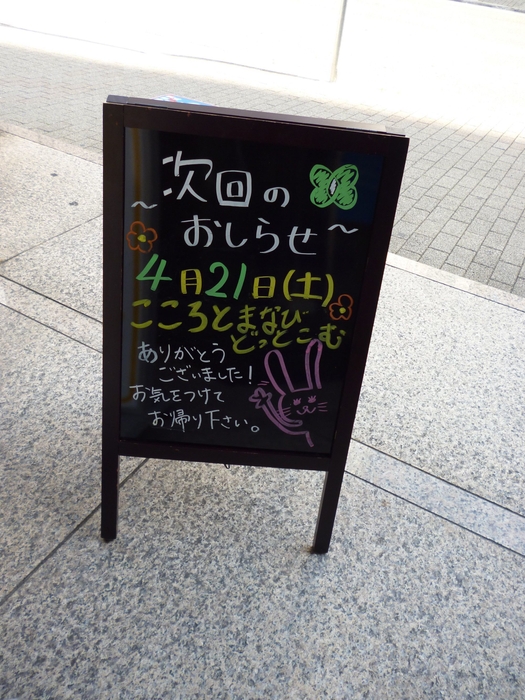 次回の
～おしらせ～
4月21日(土)
こころとまなび
どっとこむ
ありがとう
ございました!
お気をつけて
お帰り下さい。